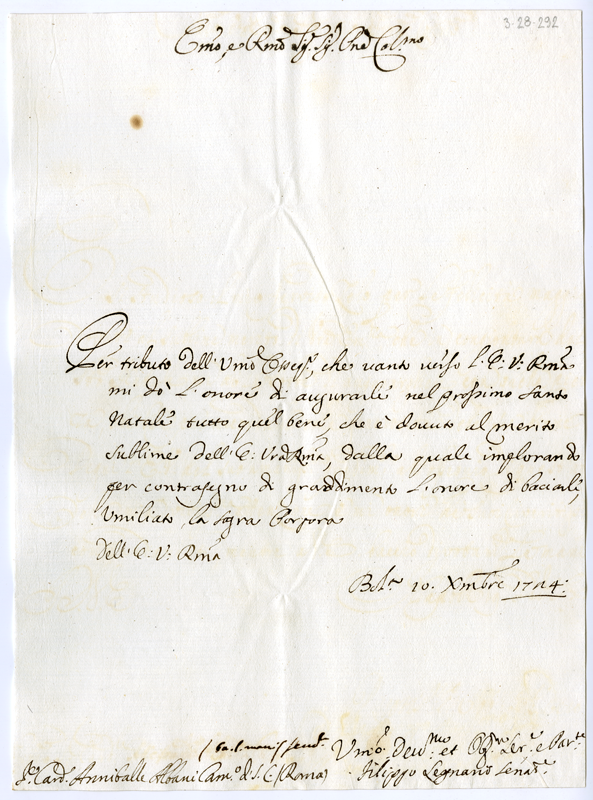 3-28-292
Emo, e Rmo Sig. Sig. Pne Col.mo
Per tributo dell' Umo Osseq.o, che vanto verso l' E: V: Rma
mi dò l' onore di augurarle nel prossimo Santo
Natale tutto quel bene, che è dovuto al merito
sublime dell' E: Vra Rma, dalla quale implorando
per contrasegno di gradimento l' onore di baciarle
Umiliato la sagra Porpora
Dell' E: V: Rma
Bol.a 10. Xmbre 1714:
Umo: Dev.mo et Obl.mo Ser.e e
Sr. Card. Anniballe Albani Cam.o di S. C. (Roma) Filippo Legnani Senat.